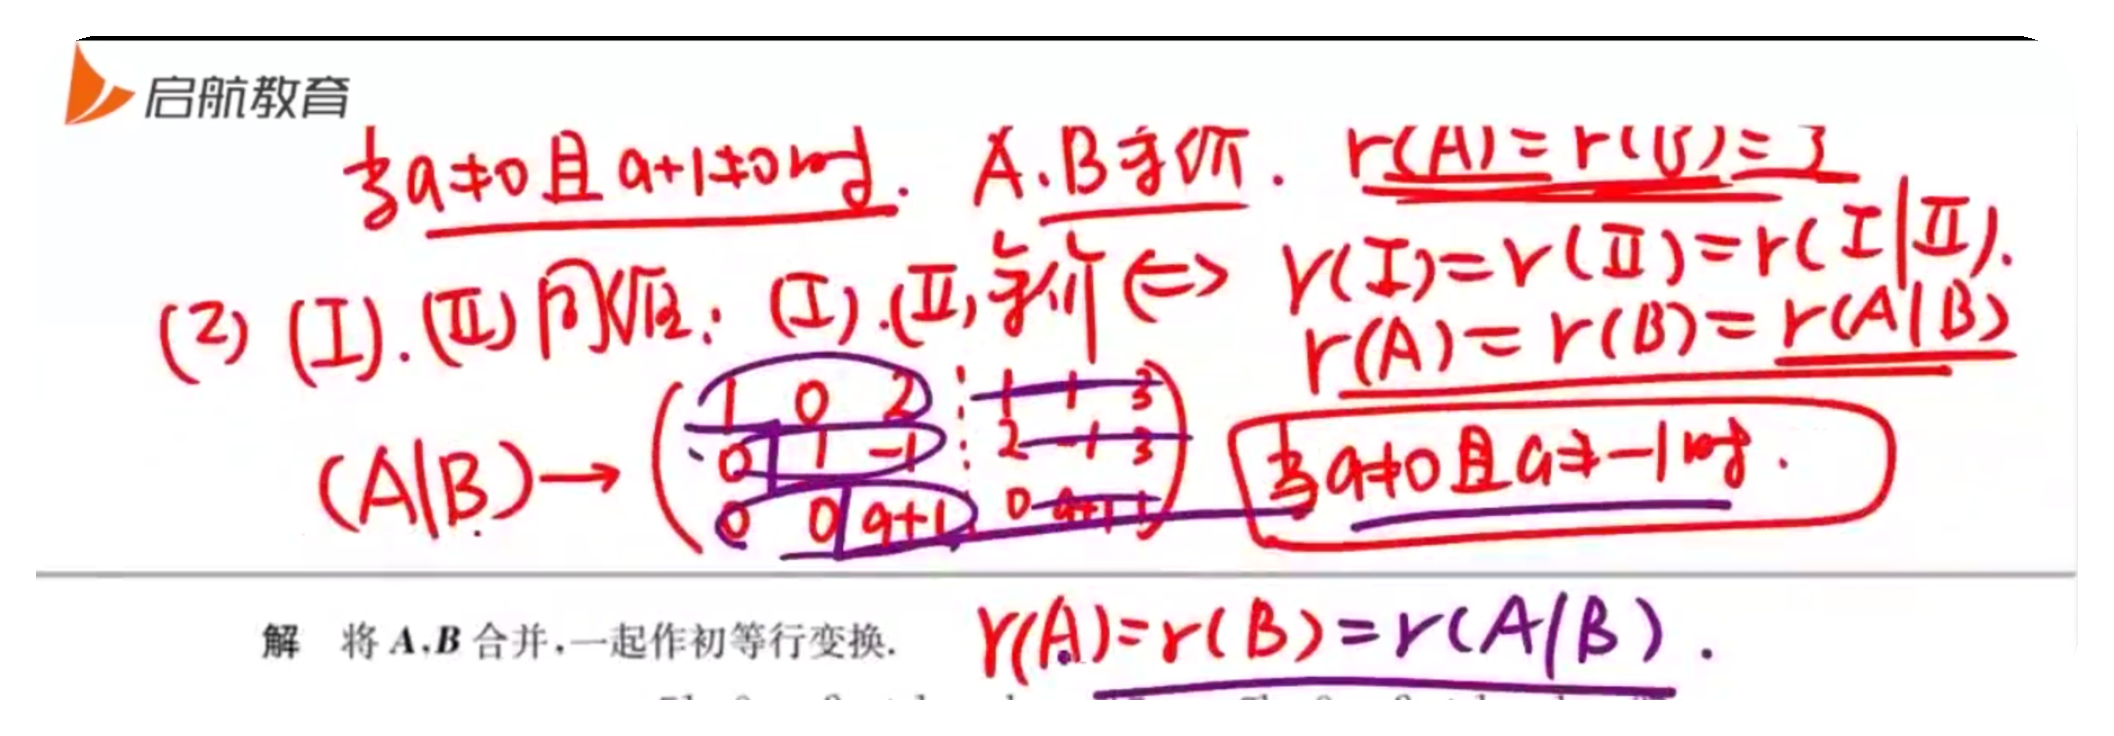 启航教育
当a≠0且a+1≠0时. A.B等价. r(A)=r(B)=3
(2) (I).(II)同解: (I).(II)等价⟺ r(I)=r(II)=r(I|II).
r(A)=r(B)=r(A|B)
(A|B)→
1 0 2 1 1 3
0 1 -1 2 -1 3
0 0 a+1 0 a+1 1
当a≠0且a≠-1时.
解 将A,B合并,一起作初等行变换.
r(A)=r(B)=r(A|B).